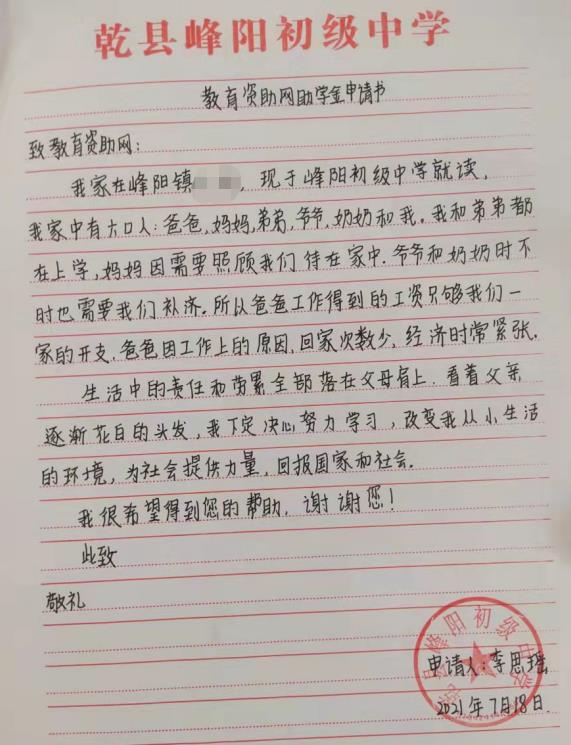 乾县峰阳初级中学
教育资助网助学金申请书
致教育资助网:
我家在峰阳镇 , 现于峰阳初级中学就读,
我家中有六口人:爸爸,妈妈,弟弟,爷爷,奶奶和我。我和弟弟都
在上学,妈妈因需要照顾我们待在家中.爷爷和奶奶时不
时也需要我们补济.所以爸爸工作得到的工资只够我们一
家的开支.爸爸因工作上的原因,回家次数少,经济时常紧张.
生活中的责任和劳累全部落在父母肩上.看着父亲
逐渐花白的头发,我下定决心努力学习,改变我从小生活
的环境,为社会提供力量,回报国家和社会.
我很希望得到您的帮助.谢谢您!
此致
敬礼
乾县峰阳初级中学
申请人:李思瑶
2021年7月18日.